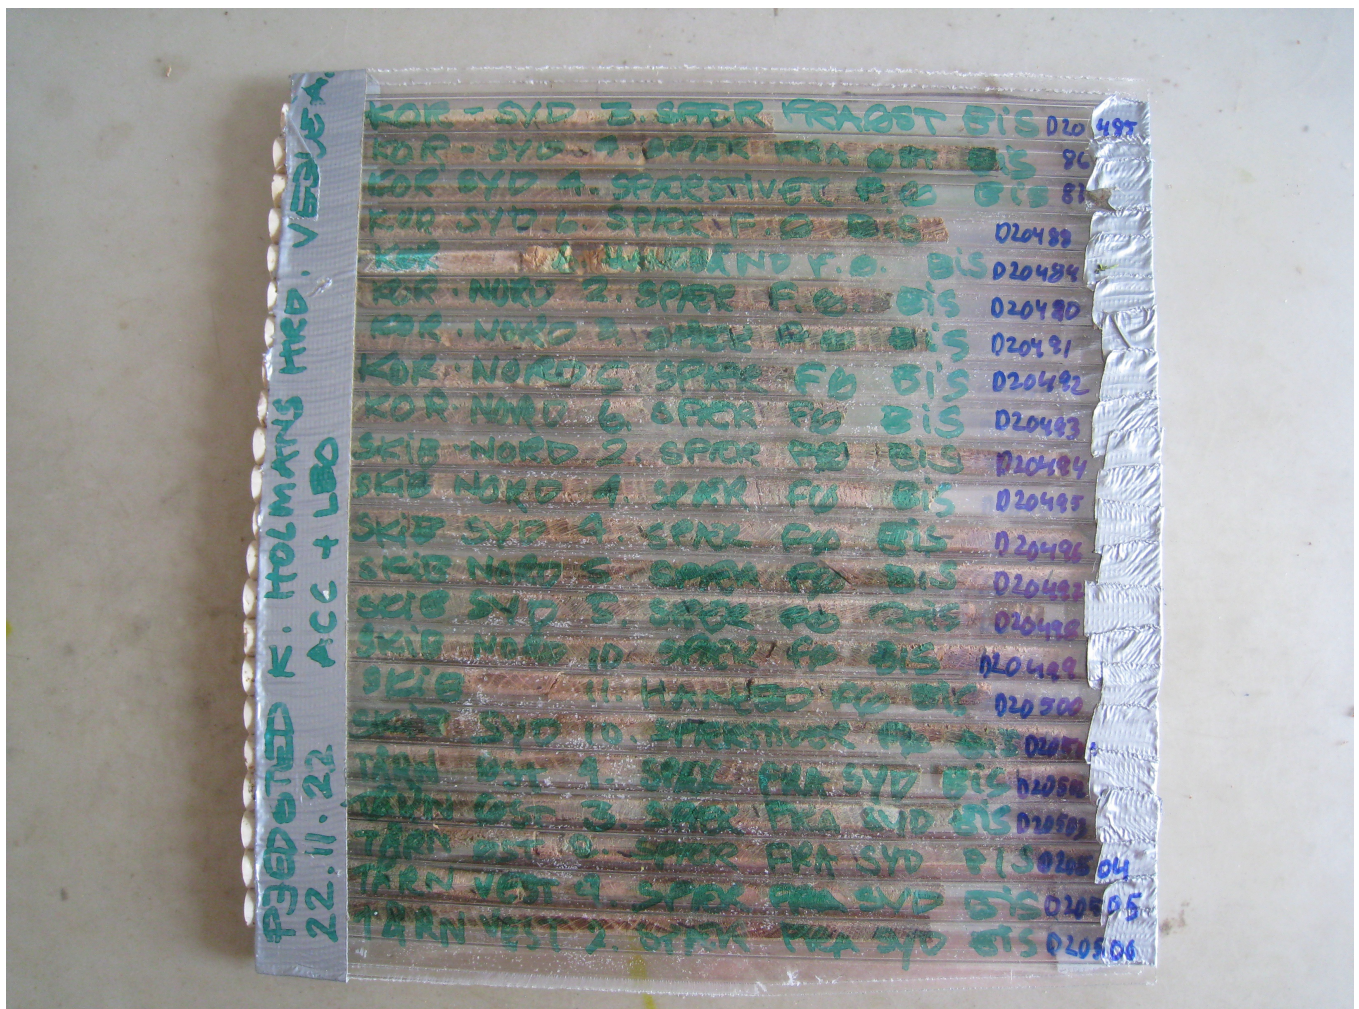 KOR - SYD 3. SPÆR FRA ØST BiS D20485
KOR - SYD 4. SPÆR FRA ØST BiS 86
KOR SYD 4. SPÆRSTIVER F.Ø BiS 87
KOR SYD 6. SPÆR F.Ø BiS D20488
KOR F.Ø. BiS
KOR. NORD 2. SPÆR F.Ø BiS
KOR. NORD SPÆR F. Ø BiS D20491
KOR. NORD SPÆR FØ BiS D20492
KOR. NORD 6. SPÆR FØ BiS D20493
SKiB NORD 2. SPÆR FØ BiS D20494
SKiB NORD 4. SPÆR FØ BiS D20495
SKiB SYD 4. SPÆR FØ BiS D20496
SKiB NORD SPÆR FØ BiS D20497
SKiB SYD SPÆR FØ BiS D20498
SKiB NORD 10. SPÆR FØ BiS D20499
SKiB 11. HANEBÅND FØ BiS D20500
SKiB SYD 10. SPÆRSTIVER FØ BiS
TÅRN ØST 4. SPÆR FRA SYD BiS D20502
TÅRN ØST 3. SPÆR FRA SYD BiS D20503
TÅRN ØST SPÆR FRA SYD BiS D20504
TÅRN VEST 4. SPÆR FRA SYD BiS D20505
TÅRN VEST 2. SPÆR FRA SYD BiS D20506
K. HOLMANS HRD.
22.11.22 ACC + LBO